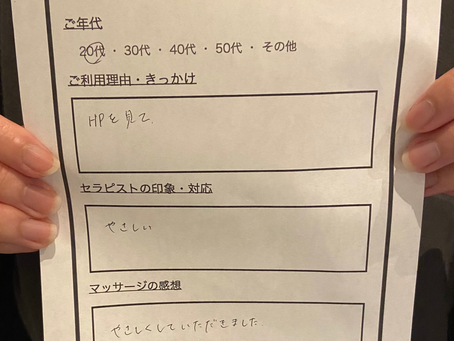 ご年代
20代 ・ 30代 ・ 40代 ・ 50代 ・ その他
ご利用理由・きっかけ
HPを見て
セラピストの印象・対応
やさしい
マッサージの感想
やさしくしていただきました